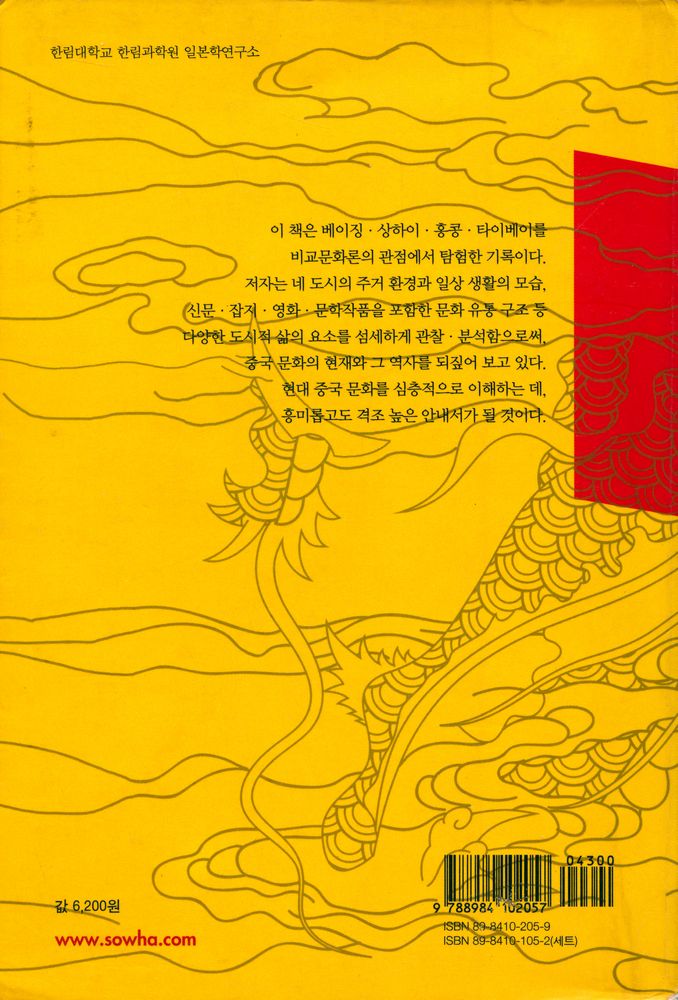 한림대학교 한림과학원 일본학연구소
이 책은 베이징 · 상하이 · 홍콩 · 타이베이를
비교문화론의 관점에서 탐험한 기록이다.
저자는 네 도시의 주거 환경과 일상 생활의 모습,
신문 · 잡지 · 영화 · 문학작품을 포함한 문화 유통 구조 등
다양한 도시적 삶의 요소를 섬세하게 관찰 · 분석함으로써,
중국 문화의 현재와 그 역사를 되짚어 보고 있다.
현대 중국 문화를 심층적으로 이해하는 데,
흥미롭고도 격조 높은 안내서가 될 것이다.
04300
9 788984 102057
값 6,200원
ISBN 89-8410-205-9
www.sowha.com
ISBN 89-8410-105-2(세트)